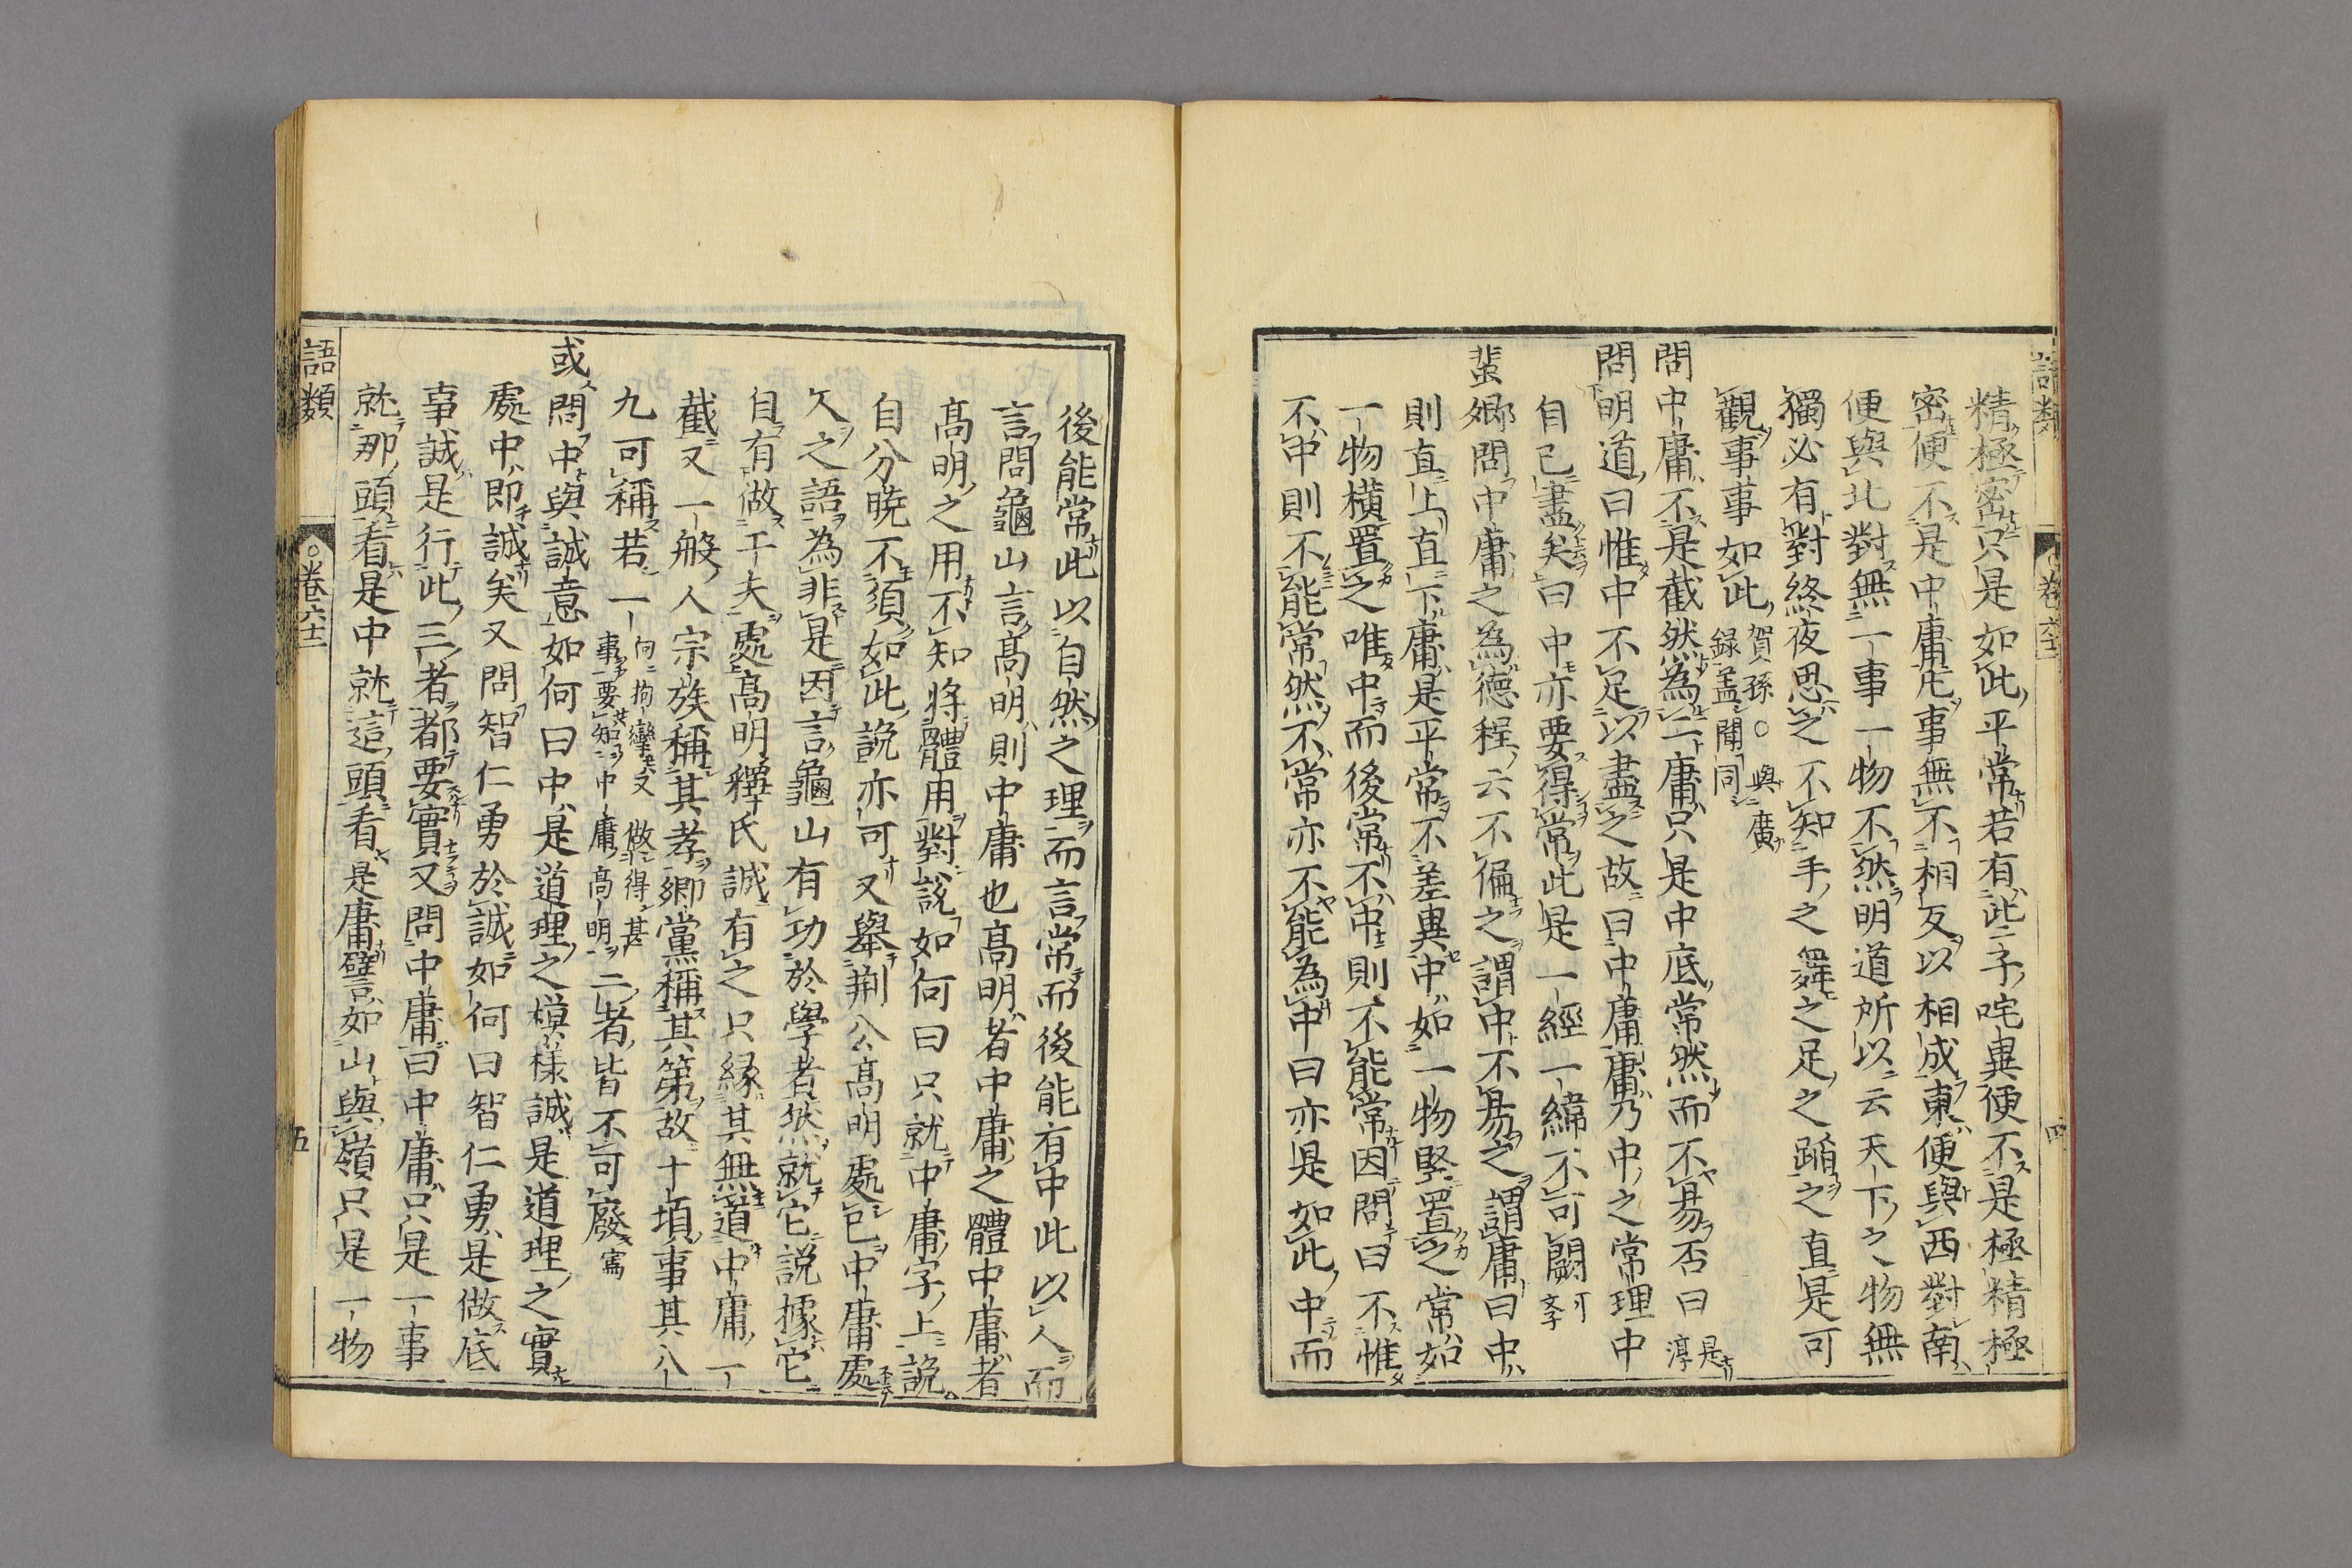 精極密只是如此平常若有些子咤異便不是極精極
密便不是中庸凡事無不相反以相成東便與西對南
便與北對無一事一物不然明道所以云天下之物無
獨必有對終夜思之不知手之舞之足之蹈之直是可
觀事事如此賀孫○與廣録盖聞同
問中庸不是截然為二庸只是中底常然而不易否曰是淳
問明道曰惟中不足以盡之故曰中庸庸乃中之常理中
自已盡矣曰中亦要得常此是一經一緯不可闕可孛
蜚卿問中庸之為德程云不偏之謂中不易之謂庸曰中
則直上直下庸是平常不差異中如一物竪置之常如
一物橫置之唯中而後常不中則不能常因問曰不惟
不中則不能常然不常亦不能為中曰亦是如此中而
後能常此以自然之理而言常而後能有中此以人而
言問龜山言高明則中庸也高明者中庸之體中庸者
高明之用不知將體用對說如何曰只就中庸字上說
自分曉不須如此說亦可又舉荆公高明處已中庸處
人之語為非是因言龜山有功於學者然就它說據它
自有做工夫處高明釋氏誠有之只緣其無道中庸一
截又一般人宗族稱其孝鄉黨稱其弟故十項事其八
九可稱若一向拘攣又做得甚事要知中庸高明二者皆不可廢㝢
或問中與誠意如何曰中是道理之模樣誠是道理之實
處中即誠矣又問智仁勇於誠如何曰智仁勇是做底
事誠是行此三者都要實又問中庸曰中庸只是一事
就那頭看是中就這頭看是庸譬如山與嶺只是一物
語類
卷六十二
五
語類
卷六十二
四